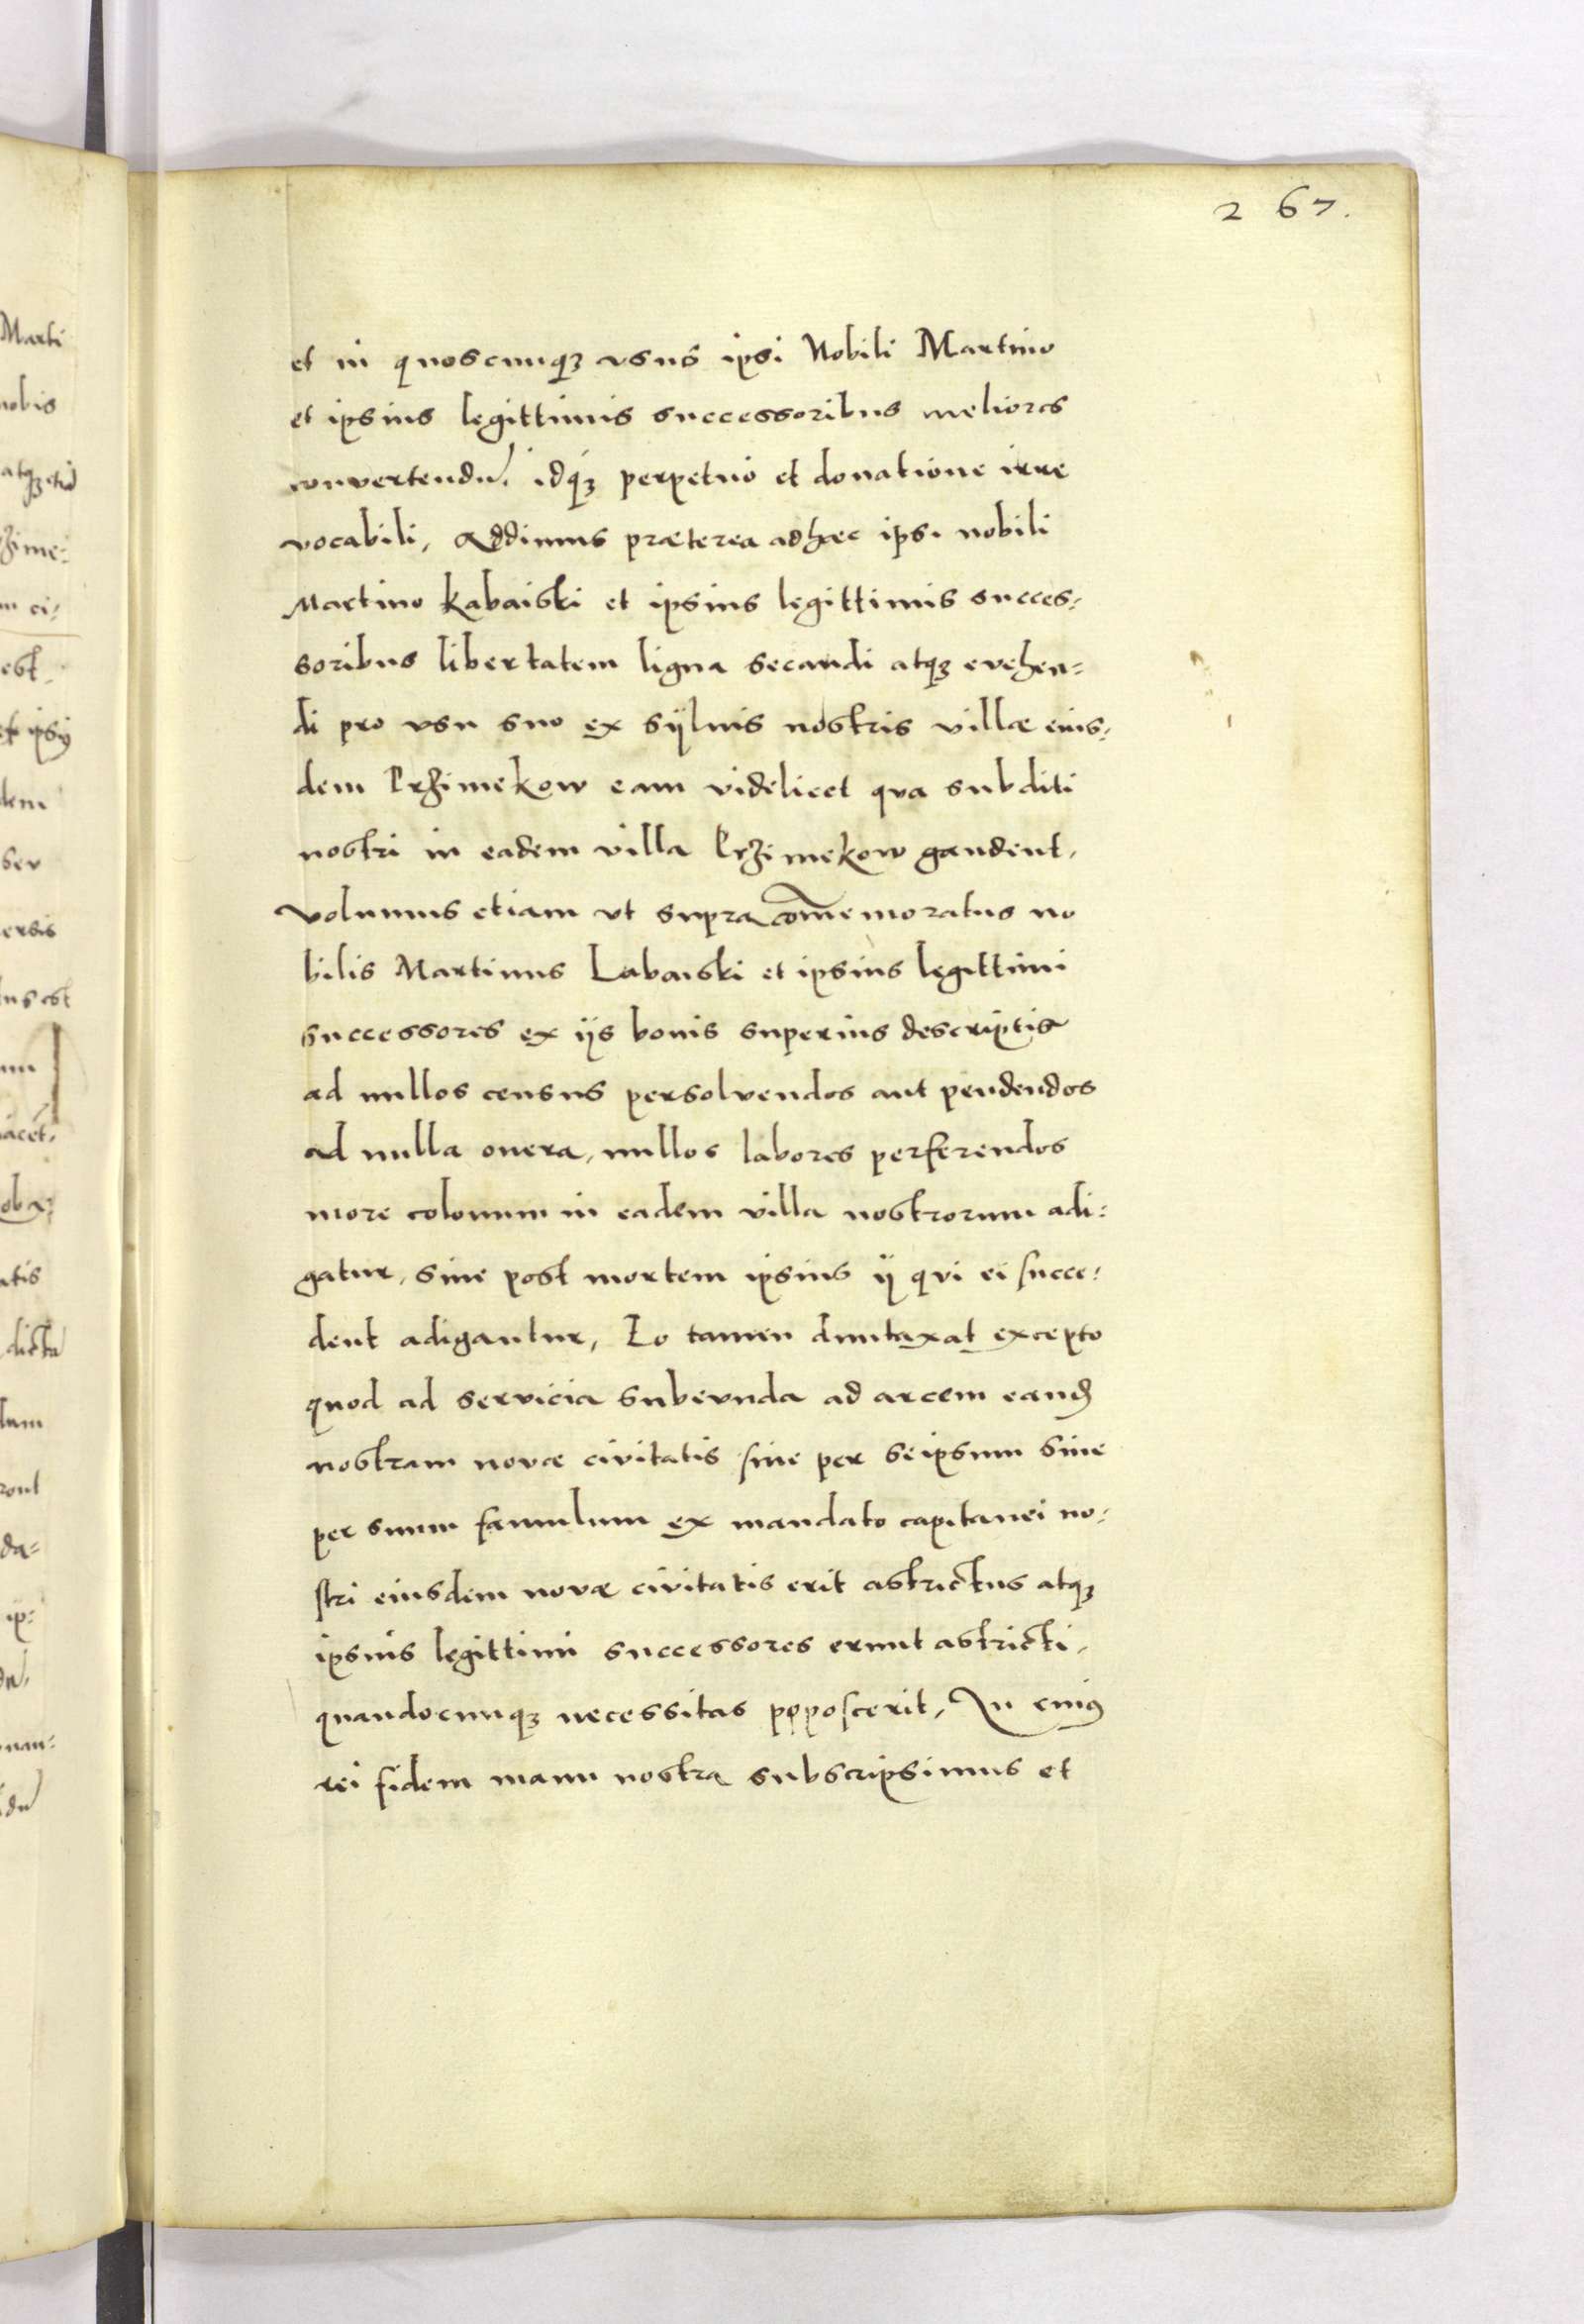 267.
et in quoscunqꝫ vsus ipsi Nobili Martino
et ipsius legittimis successoribus meliores
convertendũ, idqꝫ perpetuo et donatione irre
vocabili, Addimus præterea adhæc ipsi nobili
Martino Kabaiski et ipsius legittimis succes:
soribus libertatem ligna secandi atqꝫ evehen:
di pro vsu suo ex sÿluis nostris villæ eius:
dem Przimekow eam videlicet qua subditi
nostri in eadem villa Przimekow gaudent,
Volumus etiam vt supra com̃emoratus no
bilis Martinus Labaiski et ipsius legittimi
successores ex ijs bonis superius descriptis
ad nullos census persolvendos aut pendendos
ad nulla onera, nullos labores perferendos
more colonum in eadem villa nostrorum adi:
gatur, siue post mortem ipsius ij qvi ei succe:
dent adigantur, Eo tamen duntaxat excepto
quod ad servicia subeunda ad arcem eandẽ
nostram novæ civitatis siue per seipsum siue
per suum famulum ex mandato capitanei no:
stri eiusdem novæ civitatis erit astrictus atqꝫ
ipsius legittimi successores erunt astricti,
quandocunqꝫ necessitas poposcerit, In cuius
rei fidem manu nostra subscripsimus et
Marti
nobis